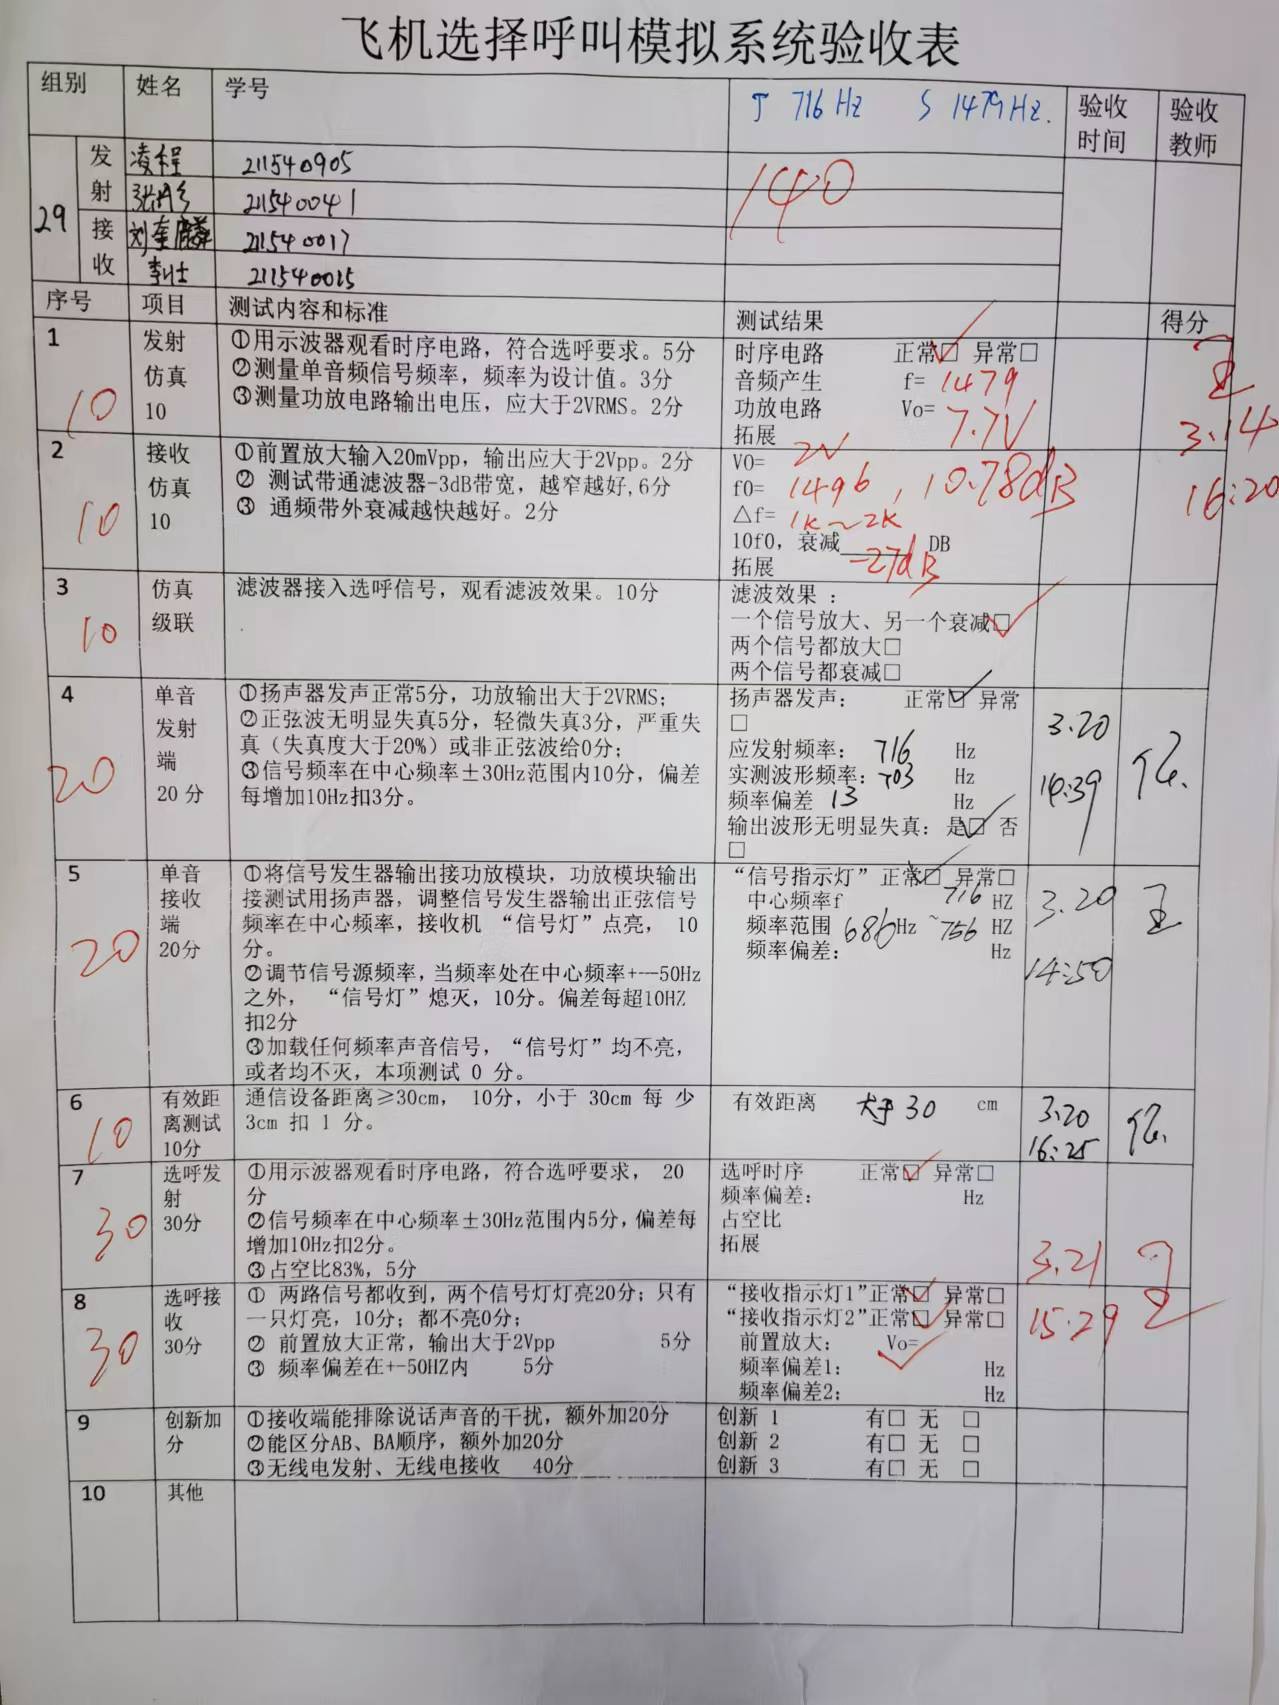 飞机选择呼叫模拟系统验收表
组别 姓名 学号 J 716 Hz S 1479 Hz. 验收时间 验收教师
29 发射 凌程 211540905
211540041
140
接收 刘奎麟 211540017
李仕 211540015
序号 项目 测试内容和标准 测试结果 得分
1 发射仿真10 10
①用示波器观看时序电路，符合选呼要求。5分
②测量单音频信号频率，频率为设计值。3分
③测量功放电路输出电压，应大于2VRMS。2分
时序电路 正常☑ 异常□
音频产生 f= 1479
功放电路 Vo= 7.7V
拓展
王
3.14
16:20
2 接收仿真10 10
①前置放大输入20mVpp，输出应大于2Vpp。2分
② 测试带通滤波器-3dB带宽，越窄越好,6分
③ 通频带外衰减越快越好。2分
VO= 2V
f0= 1496 , 10.78dB
△f= 1K～2K
10f0，衰减 -27dB DB
拓展
3 仿真级联 10
滤波器接入选呼信号，观看滤波效果。10分
滤波效果 ：
一个信号放大、另一个衰减☑
两个信号都放大□
两个信号都衰减□
4 单音发射端20 分 20
①扬声器发声正常5分，功放输出大于2VRMS；
②正弦波无明显失真5分，轻微失真3分，严重失
真（失真度大于20%）或非正弦波给0分；
③信号频率在中心频率±30Hz范围内10分，偏差
每增加10Hz扣3分。
扬声器发声： 正常☑ 异常
□
应发射频率： 716 Hz
实测波形频率：703 Hz
频率偏差 13 Hz
输出波形无明显失真：是☑ 否
□
3.20
14:39
5 单音接收端20分 20
①将信号发生器输出接功放模块，功放模块输出
接测试用扬声器，调整信号发生器输出正弦信号
频率在中心频率，接收机 “信号灯”点亮， 10
分。
②调节信号源频率，当频率处在中心频率+—50Hz
之外， “信号灯”熄灭，10分。偏差每超10HZ
扣2分
③加载任何频率声音信号，“信号灯”均不亮，
或者均不灭，本项测试 0 分。
“信号指示灯”正常☑ 异常□
中心频率f 716 HZ
频率范围 686Hz ~756 HZ
频率偏差： Hz
3.20
14:50
王
6 有效距离测试10分 10
通信设备距离≥30cm， 10分，小于 30cm 每 少
3cm 扣 1 分。
有效距离 大于30 cm
3.20
16:25
7 选呼发射30分 30
①用示波器观看时序电路，符合选呼要求， 20
分
②信号频率在中心频率±30Hz范围内5分，偏差每
增加10Hz扣2分。
③占空比83%，5分
选呼时序 正常☑ 异常□
频率偏差： Hz
占空比
拓展
3.21
8 选呼接收30分 30
① 两路信号都收到，两个信号灯灯亮20分；只有
一只灯亮，10分；都不亮0分；
② 前置放大正常，输出大于2Vpp 5分
③ 频率偏差在+-50HZ内 5分
“接收指示灯1”正常☑ 异常□
“接收指示灯2”正常☑ 异常□
前置放大： Vo=
频率偏差1： Hz
频率偏差2： Hz
15.29
王
9 创新加分
①接收端能排除说话声音的干扰，额外加20分
②能区分AB、BA顺序，额外加20分
③无线电发射、无线电接收 40分
创新 1 有□ 无 □
创新 2 有□ 无 □
创新 3 有□ 无 □
10 其他